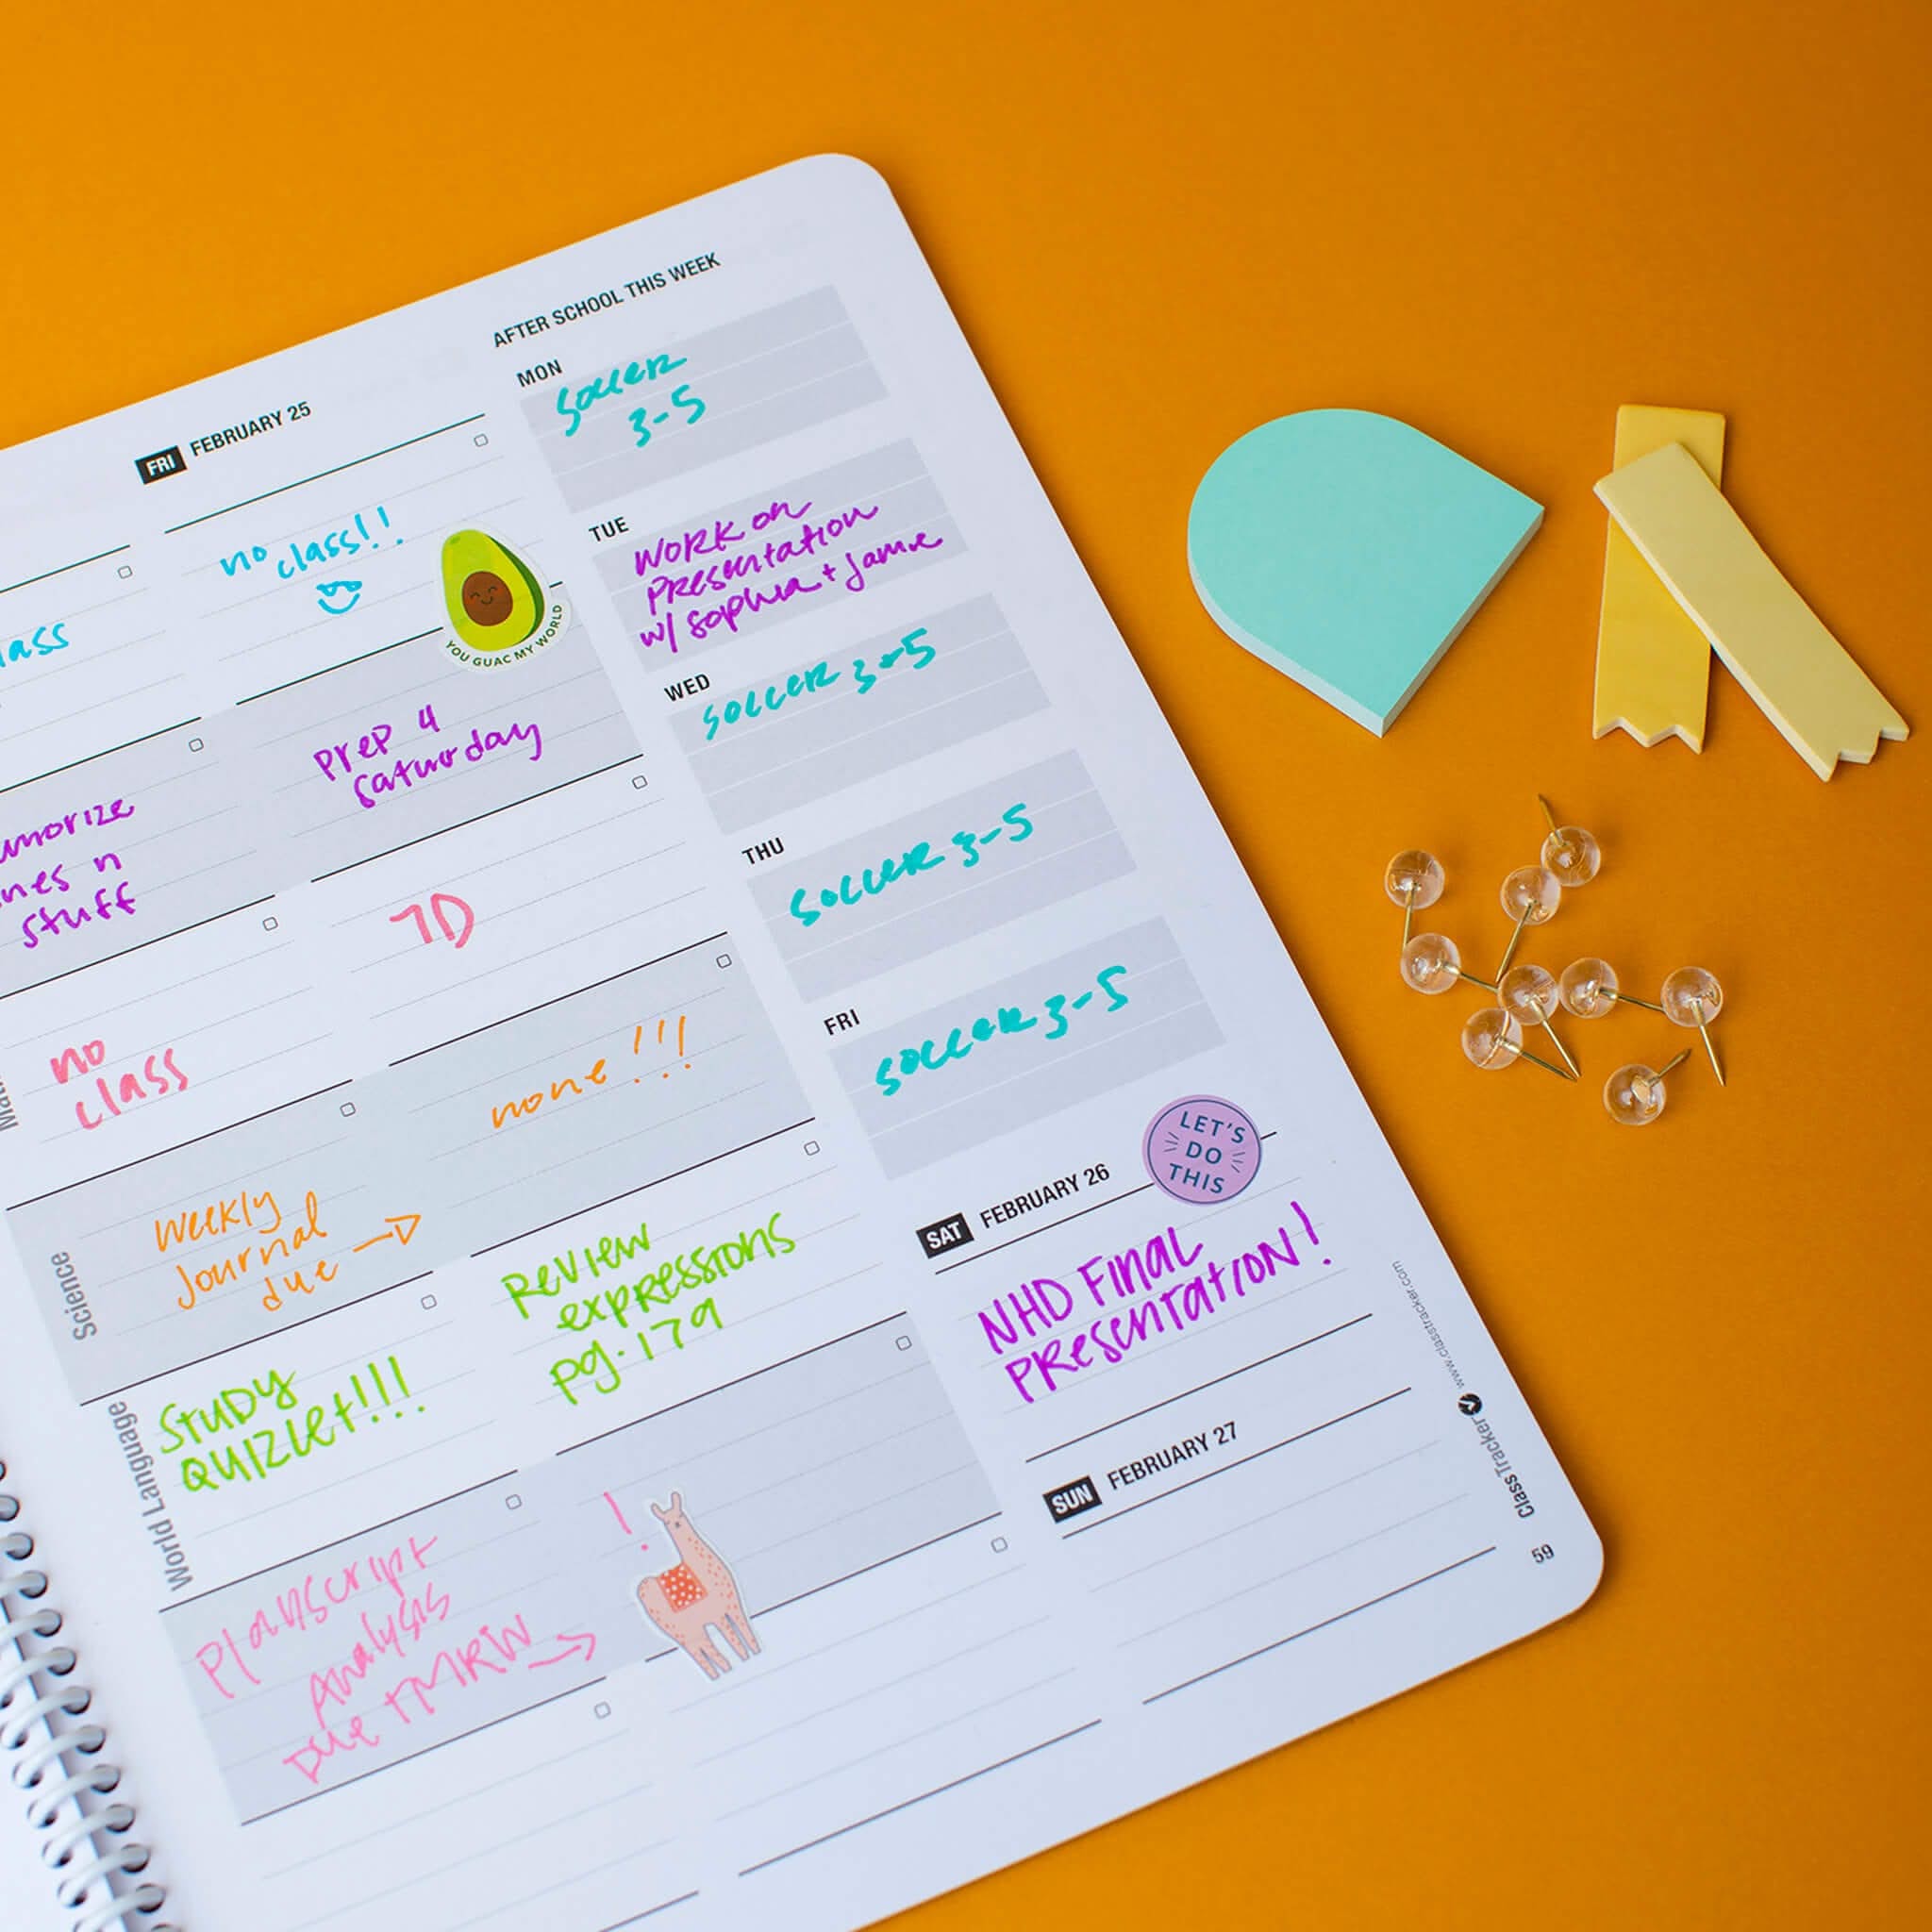 FRI FEBRUARY 25
no
class!!
YOU GUAC MY WORLD
lass
prep 4
saturday
morize
nes n
stuff
7D
no
class
none!!!
Science
weekly
journal
due →
Review
expressions
pg. 179
World Language
STUDY
QUIZLET!!!
!
Analysis
Due TMRW →
AFTER SCHOOL THIS WEEK
MON
SOCCER
3-5
TUE
WORK on
PRESentation
w/ Sophia + Jamie
WED
SOCCER 3-5
THU
SOCCER 3-5
FRI
SOCCER 3-5
LET'S
DO
THIS
SAT FEBRUARY 26
NHD Final
PResentatION!
SUN FEBRUARY 27
ClassTracker www.classtracker.com
59